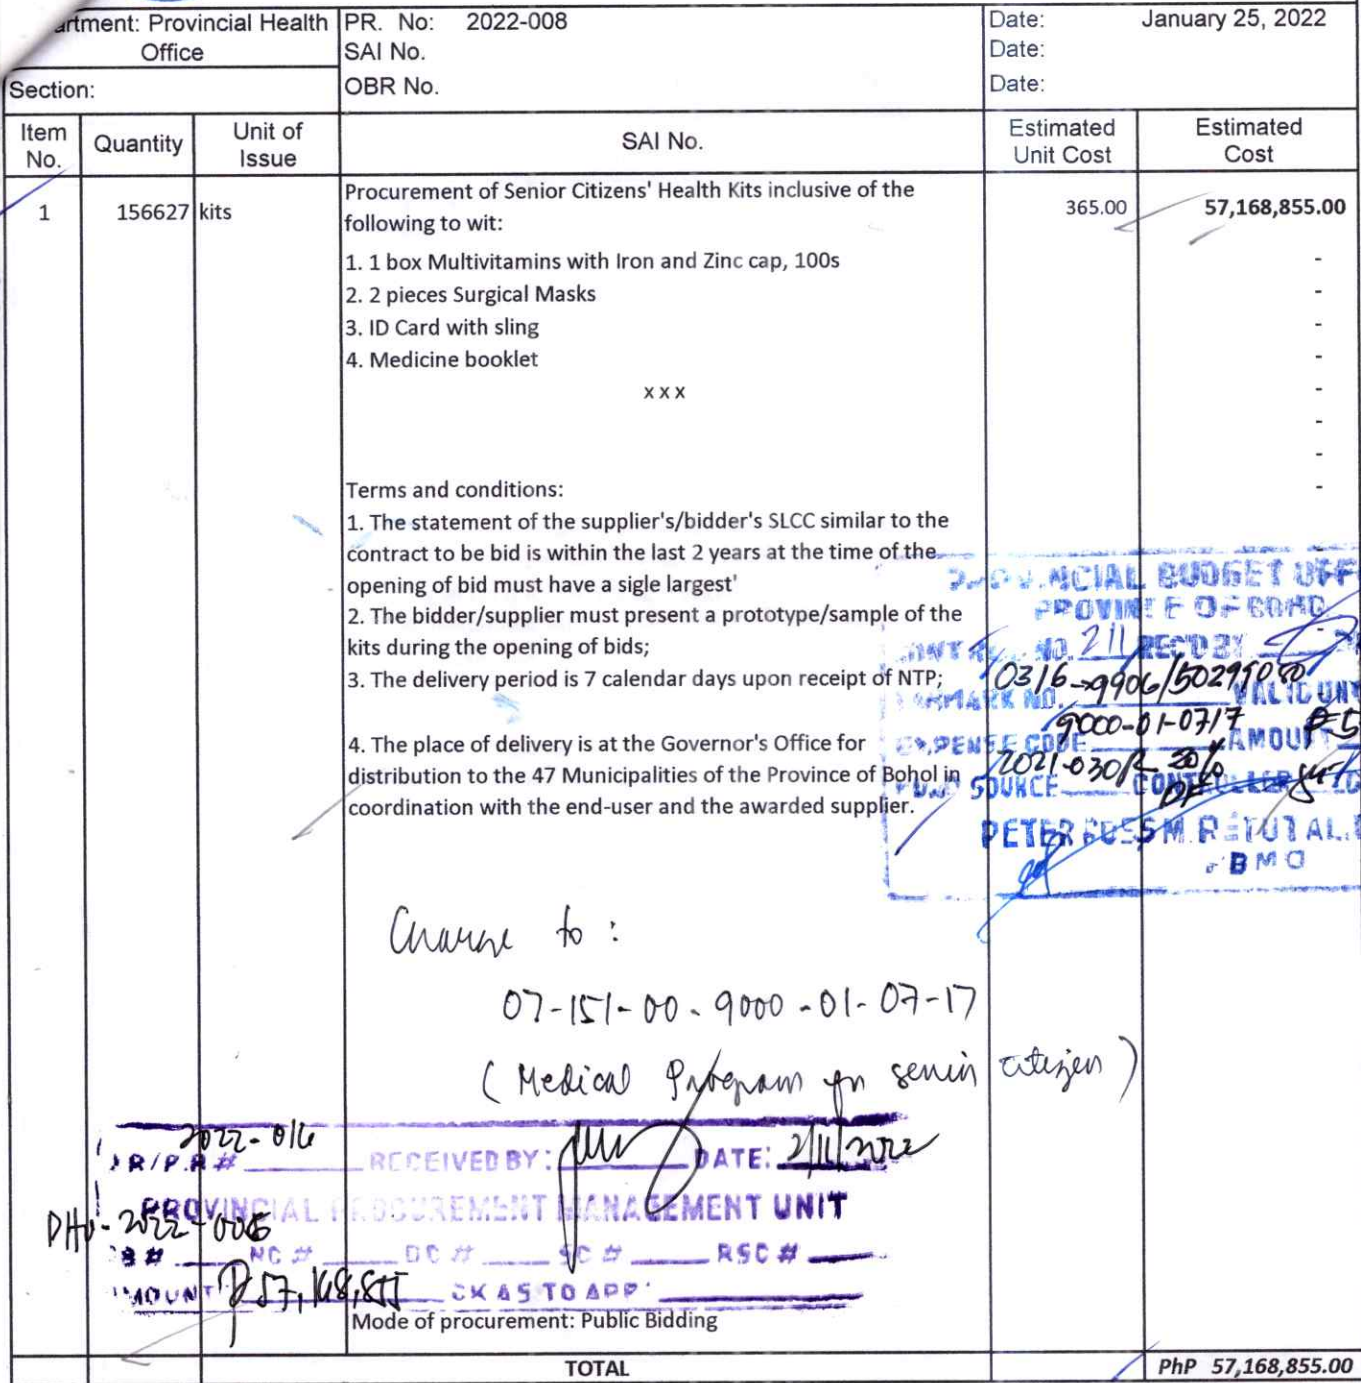 artment: Provincial Health Office
PR. No: 2022-008
Date: January 25, 2022
SAI No.
Date:
Section:
OBR No.
Date:
Item No.
Quantity
Unit of Issue
SAI No.
Estimated Unit Cost
Estimated Cost
1 156627 kits
Procurement of Senior Citizens' Health Kits inclusive of the
following to wit:
365.00 57,168,855.00
1. 1 box Multivitamins with Iron and Zinc cap, 100s -
2. 2 pieces Surgical Masks -
3. ID Card with sling -
4. Medicine booklet -
x x x -
-
-
-
Terms and conditions:
1. The statement of the supplier's/bidder's SLCC similar to the
contract to be bid is within the last 2 years at the time of the
opening of bid must have a sigle largest'
2. The bidder/supplier must present a prototype/sample of the
kits during the opening of bids;
3. The delivery period is 7 calendar days upon receipt of NTP;
4. The place of delivery is at the Governor's Office for
distribution to the 47 Municipalities of the Province of Bohol in
coordination with the end-user and the awarded supplier.
BUDGET OFF
PROVINCE OF BOHO
NO. 211 REC'D BY
0316-9906/50299080
NO. VALID UNT
9000-01-0717
EXPENSE CODE AMOUNT
2021-030/R 20% DF
FUND SOURCE
BMO
Charge to :
07-151-00-9000-01-07-17
(Medical Program for senior citizen)
2022-016
R/P.R # RECEIVED BY: DATE: 2/11/2022
PROVINCIAL PROCUREMENT MANAGEMENT UNIT
B # NC # DC # SC # RSC #
MOUNT ₱57,168,855 CK AS TO APP
Mode of procurement: Public Bidding
TOTAL PhP 57,168,855.00